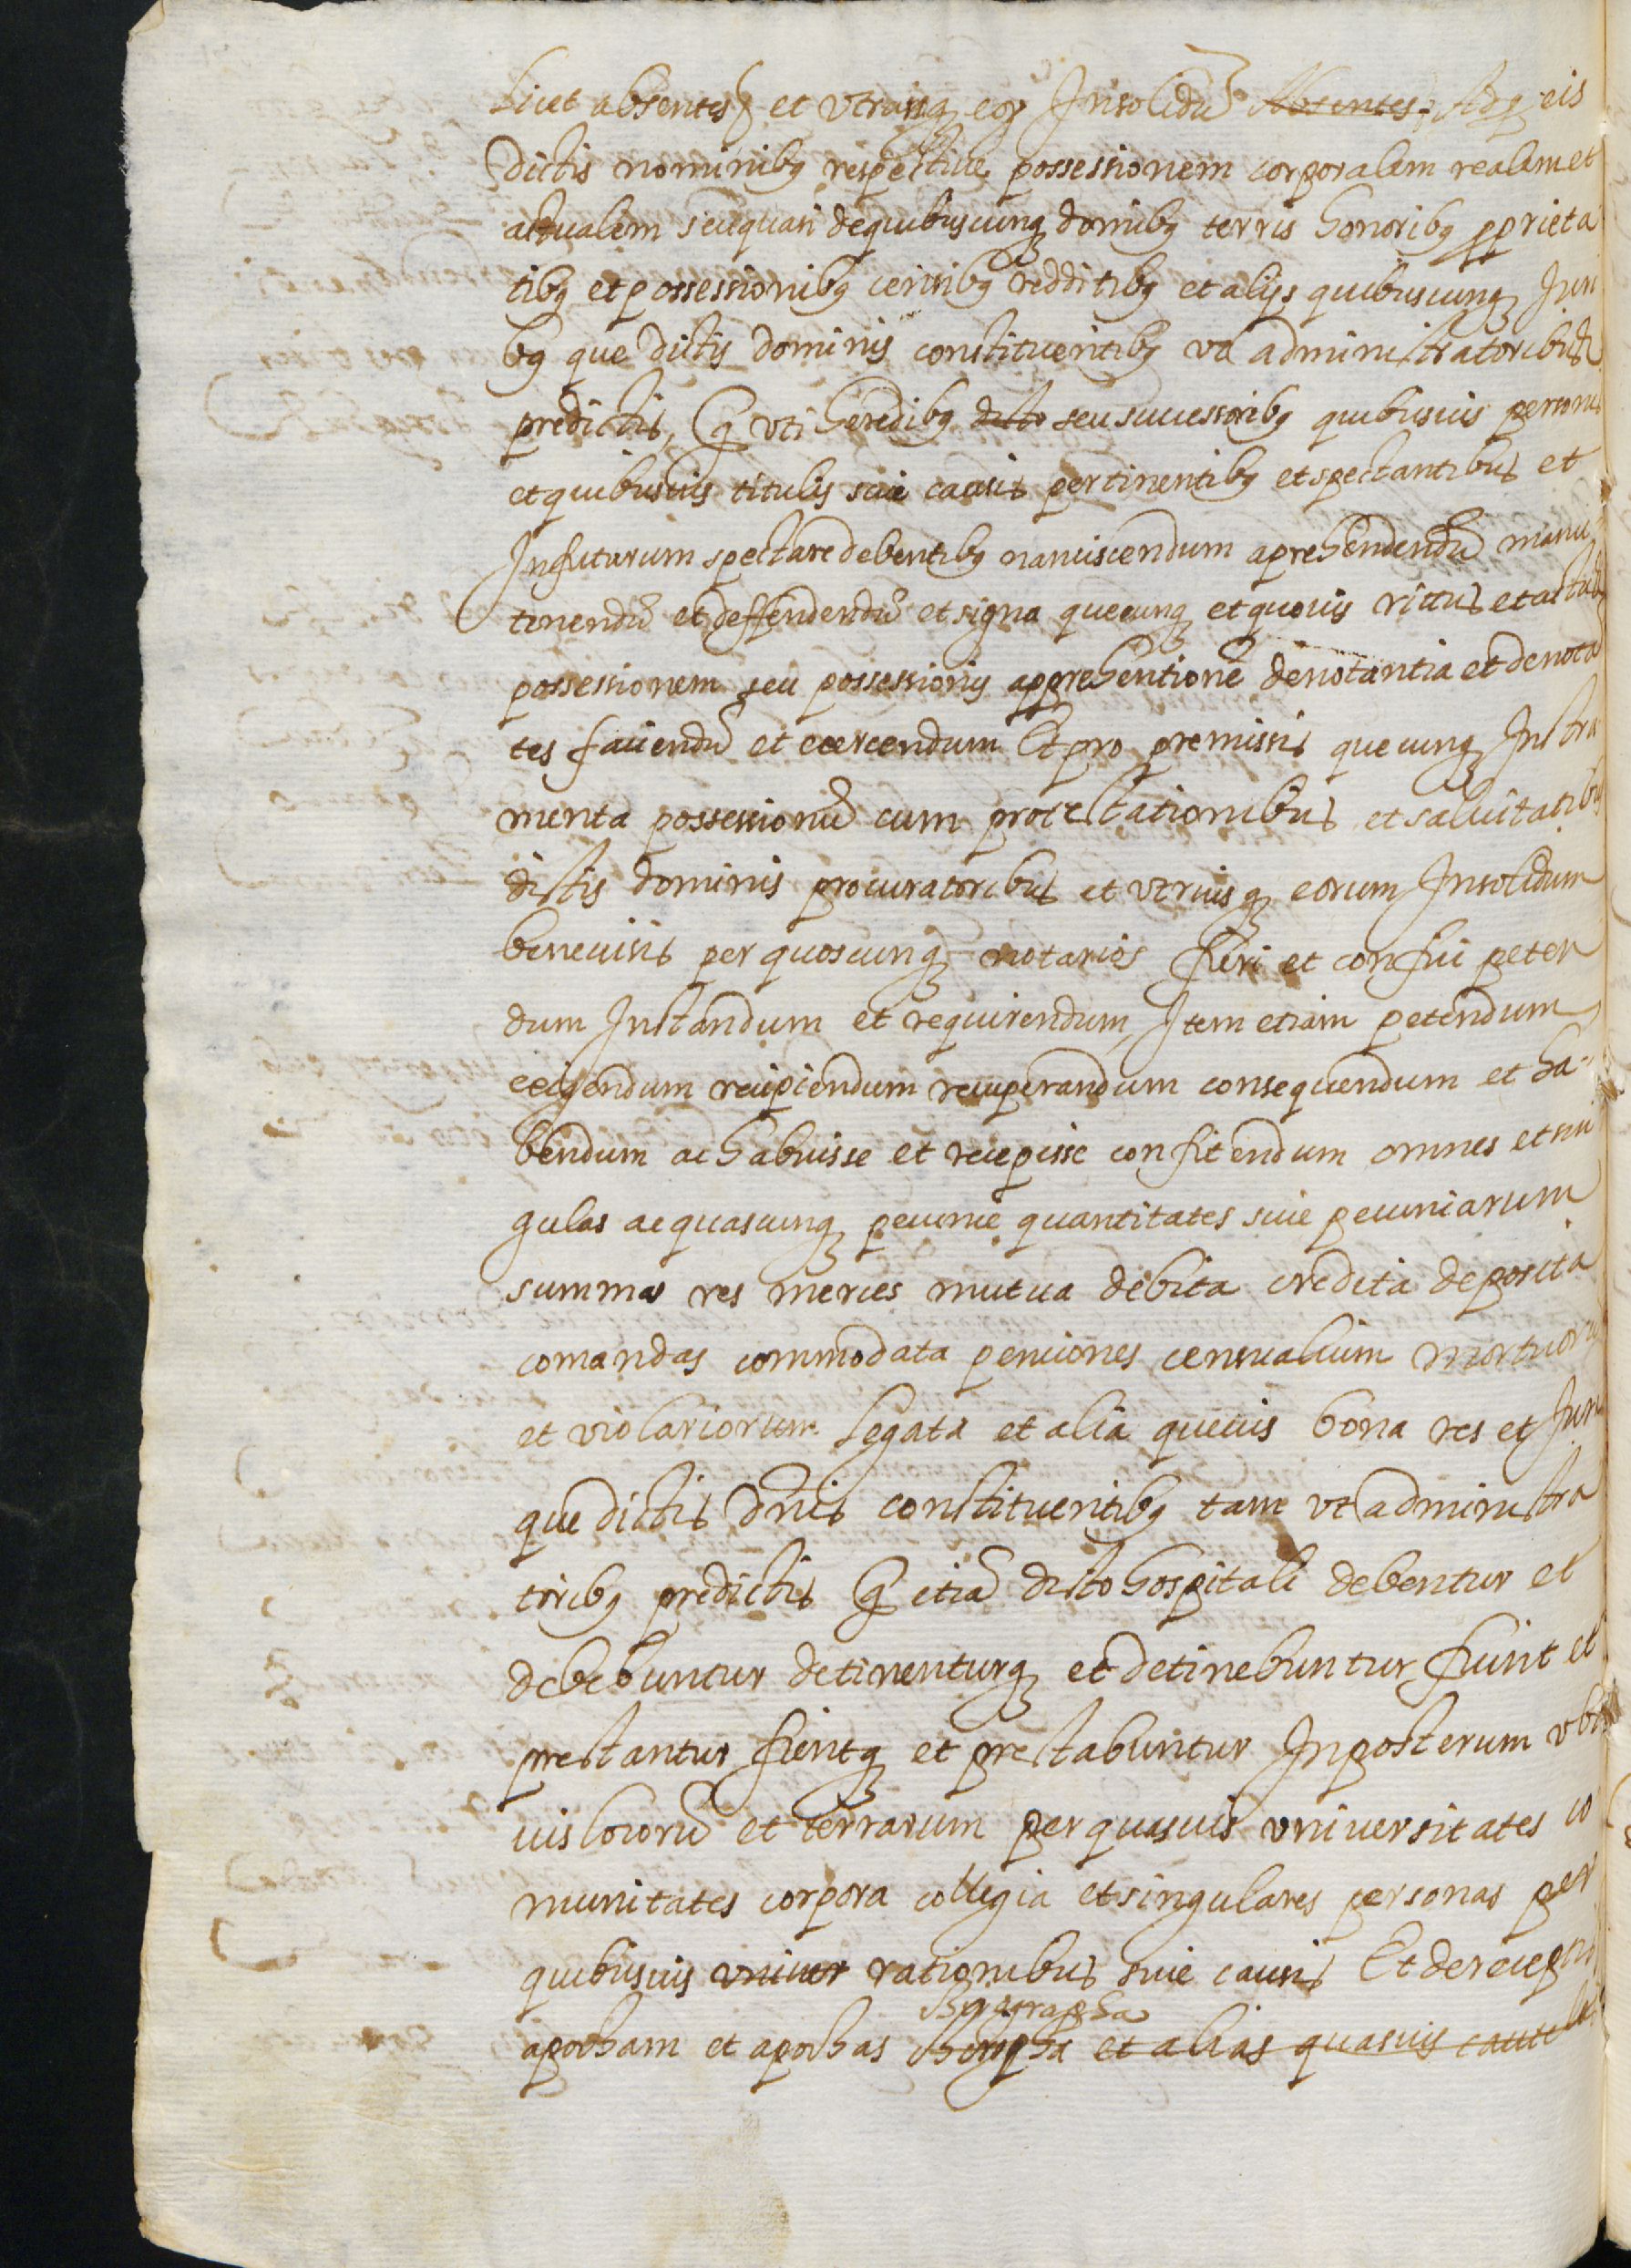 licet absentes et vtrunq eor Insolidu Absentes Adq eis
dictis nominibq respectiue possessionem corporalem realem et
actualem seu quasi de quibuscunq domibq terris honoribq pprieta
tibq et possessionibq censibq redditibq et alijs quibuscunq Juri
bq que dictis dominis constituentibq vt administratoribus
predictis, q vti heredibq dicto seu successoribq quibusuis personis
et quibusuis titulis siue causis pertinentibq et spectantibus et
Infuturum spectare debentibq nanciscendum aprehendendu manu
tenendu et deffendendu et signa quecunq et quouis rittus et actus
possessionem seu possessionis apprehentione denotantia et denota
tes faciendu et exercendum Et pro premissis quecunq Instru
menta possessionu cum protestationibus et saluitatibus
dictis dominis procuratoribus et vtriusq eorum Insolidum
beneuisis per quoscunq notarios fieri et confici peten
dum Instandum et requirendum, Item etiam petendum
exigendum recipiendum recuperandum consequendum et ha-
bendum ac habuisse et recepisse confitendum omnes et sin
gulas ac quascunq pecunie quantitates siue pecuniarum
summas res merces mutua debita credita deposita
comandas commodata penciones censualium mortuoru
et violariorum legata et alia queuis bona res et Jura
que dictis dnis constituentibq tam vt administra
toribq predictis q etia dicto hospitali debentur et
debebuntur detinenturq et detinebuntur fiunt et
prestantur fientq et prestabuntur Inposterum vbi
uis locoru et terrarum per quasuis vniuersitates co
munitates corpora collegia et singulares personas per
quibusuis vniuer rationibus siue causis Et de receptis
Byrographa
apocham et apochas chirogpha et alias quasuis cautelas